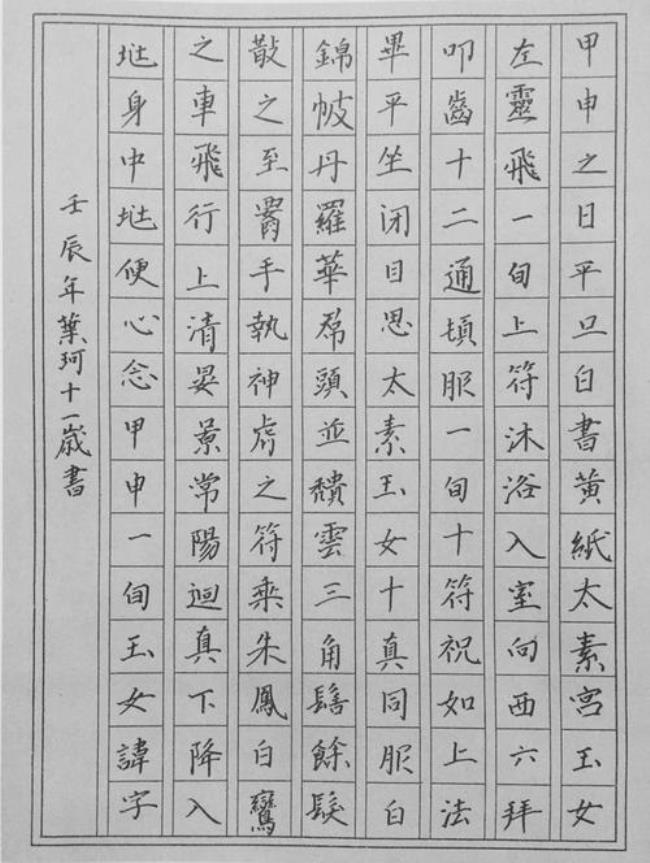 甲申之日平旦白書黄紙太素宮玉女
左靈飛一旬上符沐浴入室向西六拜
叩齒十二通頓服一旬十符祝如上法
畢平坐闭目思太素玉女十真同服白
錦帔丹羅華帬頭並穨雲三角髻餘髮
散之至署手執神虎之符乘朱鳳白鸞
之車飛行上清晏景常陽迴真下降入
坣身中坣便心念甲申一旬玉女諱字
壬辰年葉珂十一歲書